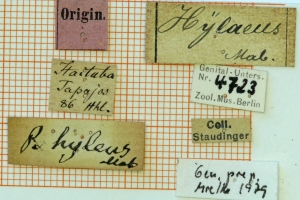 Origin.
Hÿlaeus
Mab.
Itaituba
Tapajos
86 Hhl.
Genital-Unters.
Nr. 4723
Zool. Mus. Berlin
P. hyleus
Mab
Coll.
Staudinger
Gen. prep.
1979